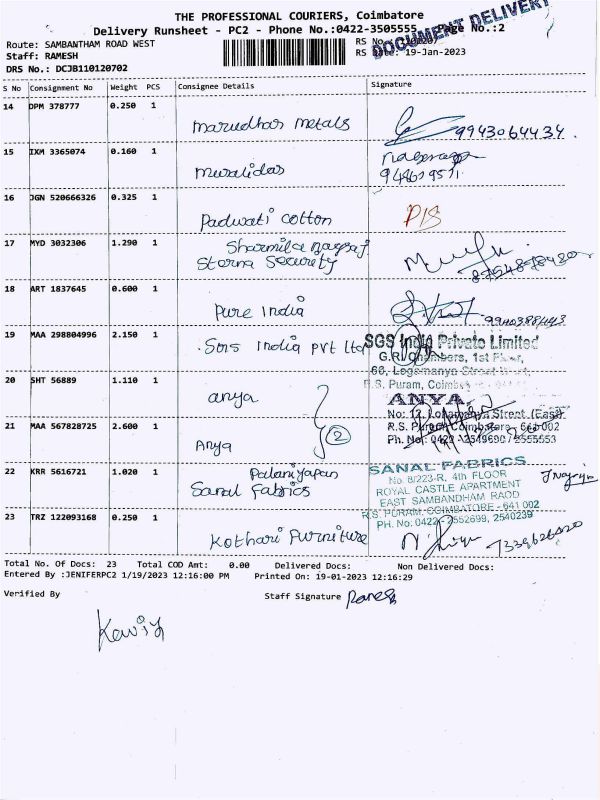 THE PROFESSIONAL COURIERS, Coimbatore
Delivery Runsheet - PC2 - Phone No.:0422-3505555, Page No.:2
DOCUMENT DELIVERY
Route: SAMBANTHAM ROAD WEST
RS No.:
Staff: RAMESH
RS Date: 19-Jan-2023
DRS No.: DCJB110120702
S No Consignment No Weight PCS Consignee Details Signature
14 DPM 378777 0.250 1
Marudhar Metals
9943064434.
15 IXM 3365074 0.160 1
Muralidas
16 JGN 520666326 0.325 1
Padwati Cotton
17 MYD 3032306 1.290 1
Sharmila Nagraj
Sterna Security
18 ART 1837645 0.600 1
Pure India
19 MAA 298804996 2.150 1
SGS India Pvt Ltd
SGS India Private Limited
G.R. Chambers, 1st Floor,
R.S. Puram,
20 SHT 56889 1.110 1
anya
ANYA
No: 12, Lokamanya Street (East)
R.S. Puram, Coimbatore 641 002
Ph. No: 0422 - 2549690 / 2555553
2
21 MAA 567828725 2.600 1
Anya
22 KRR 5616721 1.020 1
Palaniyapan
Sanal Fabrics
SANAL FABRICS
No. 8/223-R, 4th FLOOR
ROYAL CASTLE APARTMENT
EAST SAMBANDHAM RAOD
R.S. PURAM, COIMBATORE - 641 002
PH. No: 0422 - 2552699, 2540239
23 TRZ 122093168 0.250 1
Kothari Furniture
Total No. Of Docs: 23 Total COD Amt: 0.00 Delivered Docs: Non Delivered Docs:
Entered By :JENIFERPC2 1/19/2023 12:16:00 PM Printed On: 19-01-2023 12:16:29
Verified By
Staff Signature Ramesh